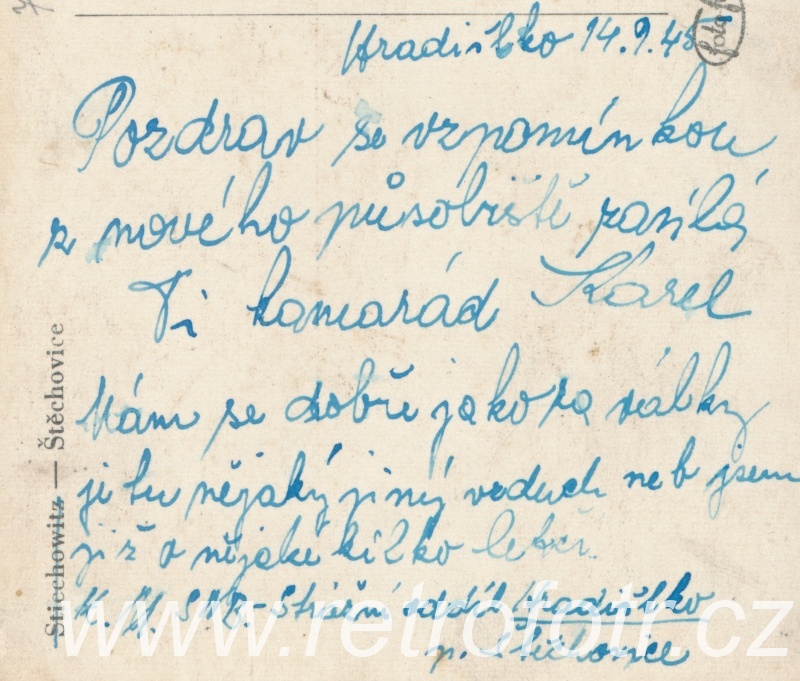 Hradišťko 14.9.45
Pozdrav se vzpomínkou
z nového působiště zasílá
Ti kamarád Karel
Mám se dobře jako za války
je tu nějaký jiný vzduch neb jsem
již o nějaké kilko lehčí.
SNB. - Strážní oddíl Hradišťko
p. Štěchovice
Stiechowitz — Štěchovice
foto
www.retrofotr.cz